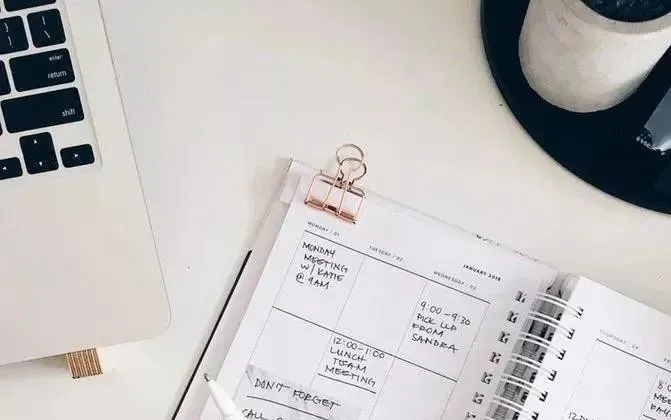 enter
return
shift
MONDAY / 01
TUESDAY / 02
WEDNESDAY / 03
JANUARY 2018
MONDAY
MEETING
W/ KATIE
@ 9AM
12:00-1:00
LUNCH
TEAM
MEETING
9:00-9:30
PICK UP
FROM
SANDRA
DON'T FORGET
CALL
THURSDAY / 04